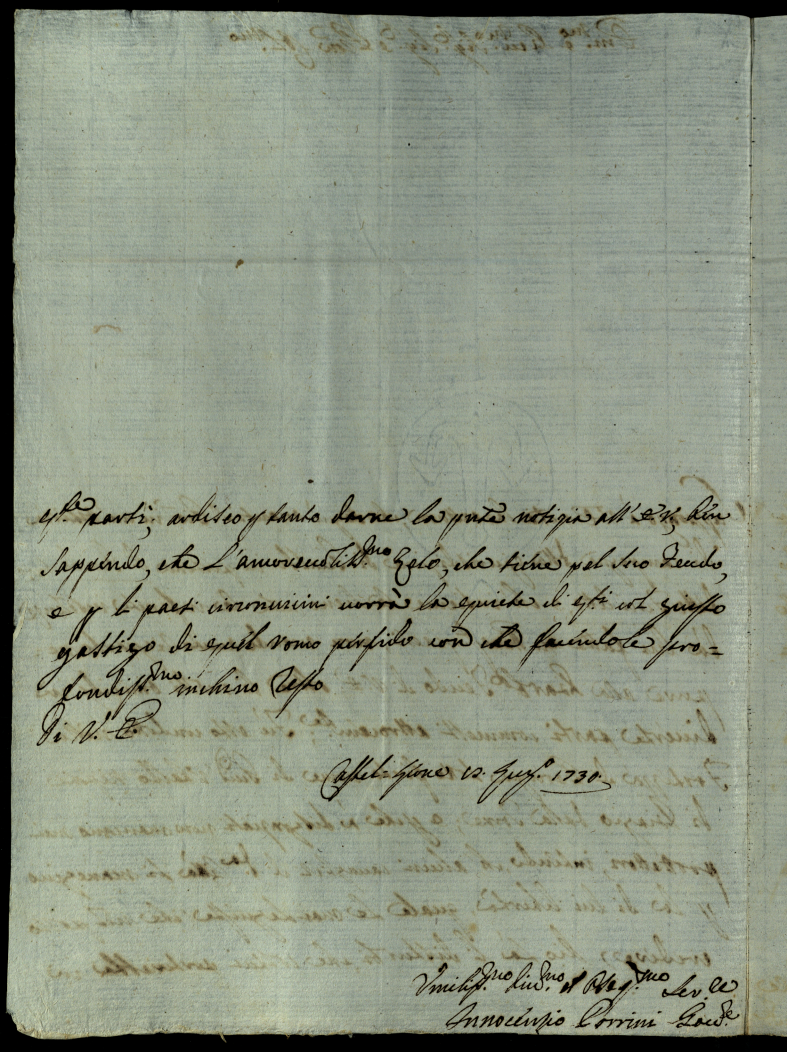 q.ste parti; ardisco p tanto darne la pnte notizia all' E. V., ben
sappendo, che l'amorevoliss.mo Zelo, che tiene pel suo Feudo,
e p li paesi circonvicini vorrà la quiete di q.ti col giusto
gastigo di quel Vomo perfido con che facendole pro=
fondiss.mo inchino resto
Di V. E.
Castel=Leone 12. Giug.o 1730.
Vmiliss.mo Div.mo et Obblig.mo Ser.re
Innocenzio Porrini Gov.re